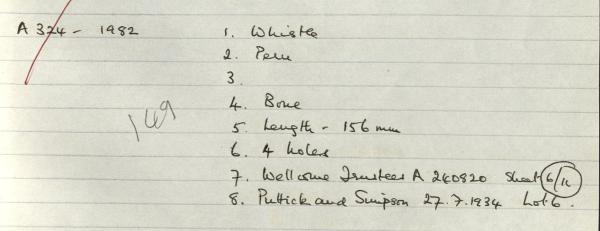 A 324 - 1982
1. Whistle
2. Peru
3
4. Bone
149
5. Length - 156 mm
6. 4 holes
7. Wellcome Trustees A 240820 Sheet 6/12
8. Puttick and Simpson 27.7.1934 Lot 6.